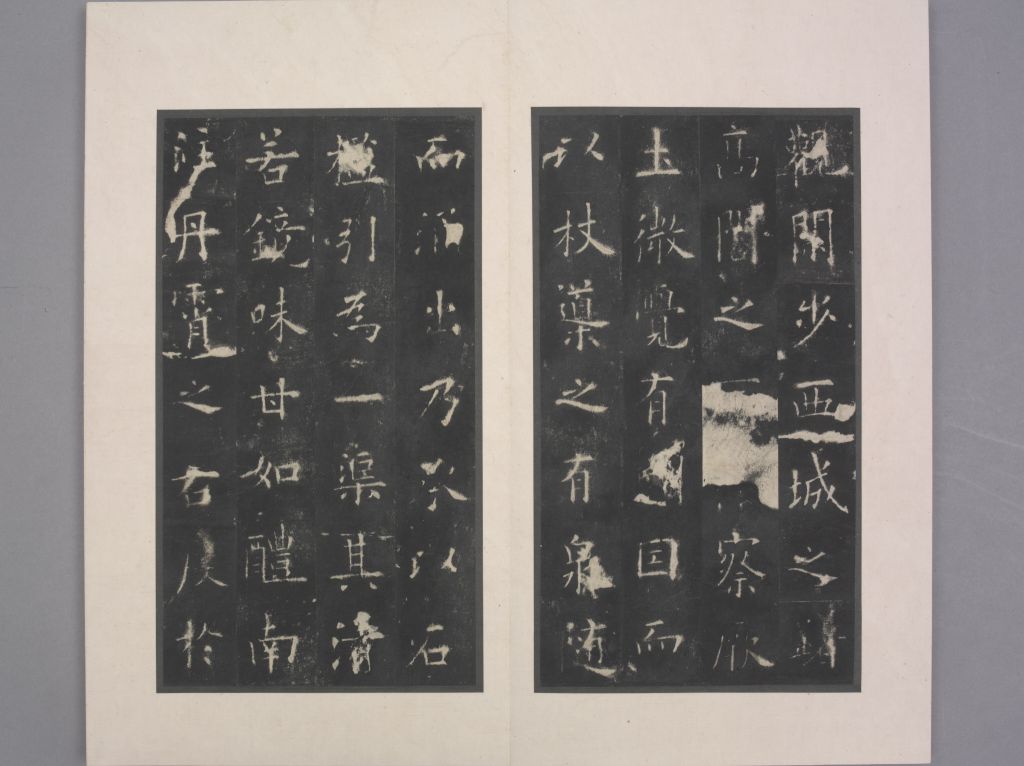 觀閑步西城之
高閣之
察厥
土微覺有
因而
以杖導之有泉隨
而涌出乃承以石
檻引為一渠其清
若鏡味甘如醴南
注丹霄之右東
於